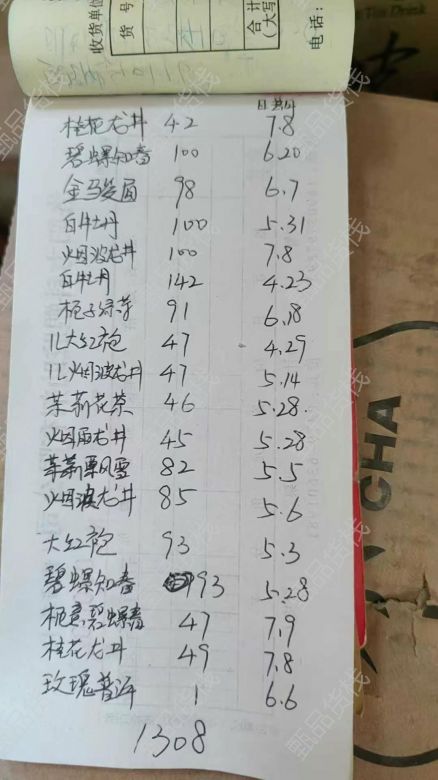 收货单位
货号
合计
(大写
电话:
Tea Drink
日期
桂花龙井 42 7.8
碧螺知春 100 6.20
金马发局 98 6.7
白牡丹 100 5.31
烟波龙井 100 7.8
白牡丹 142 4.23
栀子绿茶 91 6.18
1L大红袍 47 4.29
1L烟波龙井 47 5.14
茉莉花茶 46 5.28.
烟雨龙井 45 5.28
茉莉栗风雪 82 5.5
烟波龙井 85 5.6
大红袍 93 5.3
碧螺知春 93 5.28
栀意碧螺春 47 7.9
桂花龙井 49 7.8
玫瑰普洱 1 6.6
1308
CHA
甄品货栈